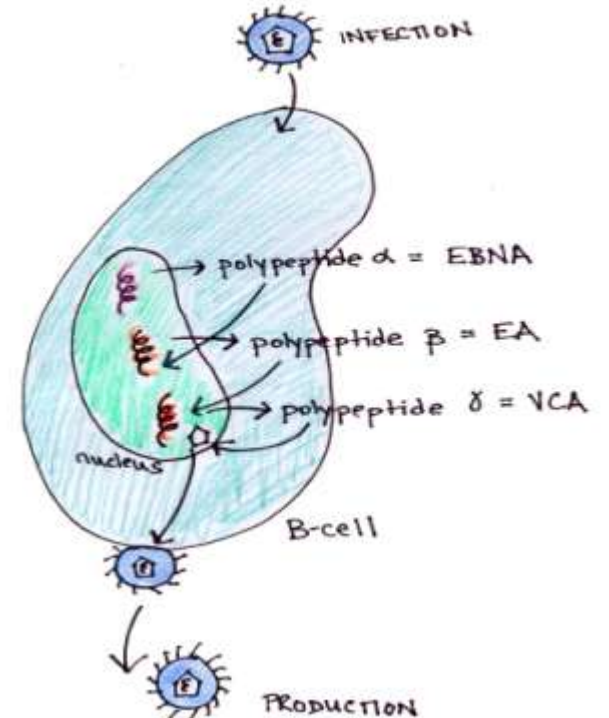 INFECTION
polypeptide α = EBNA
polypeptide β = EA
polypeptide γ = VCA
nucleus
B-cell
PRODUCTION